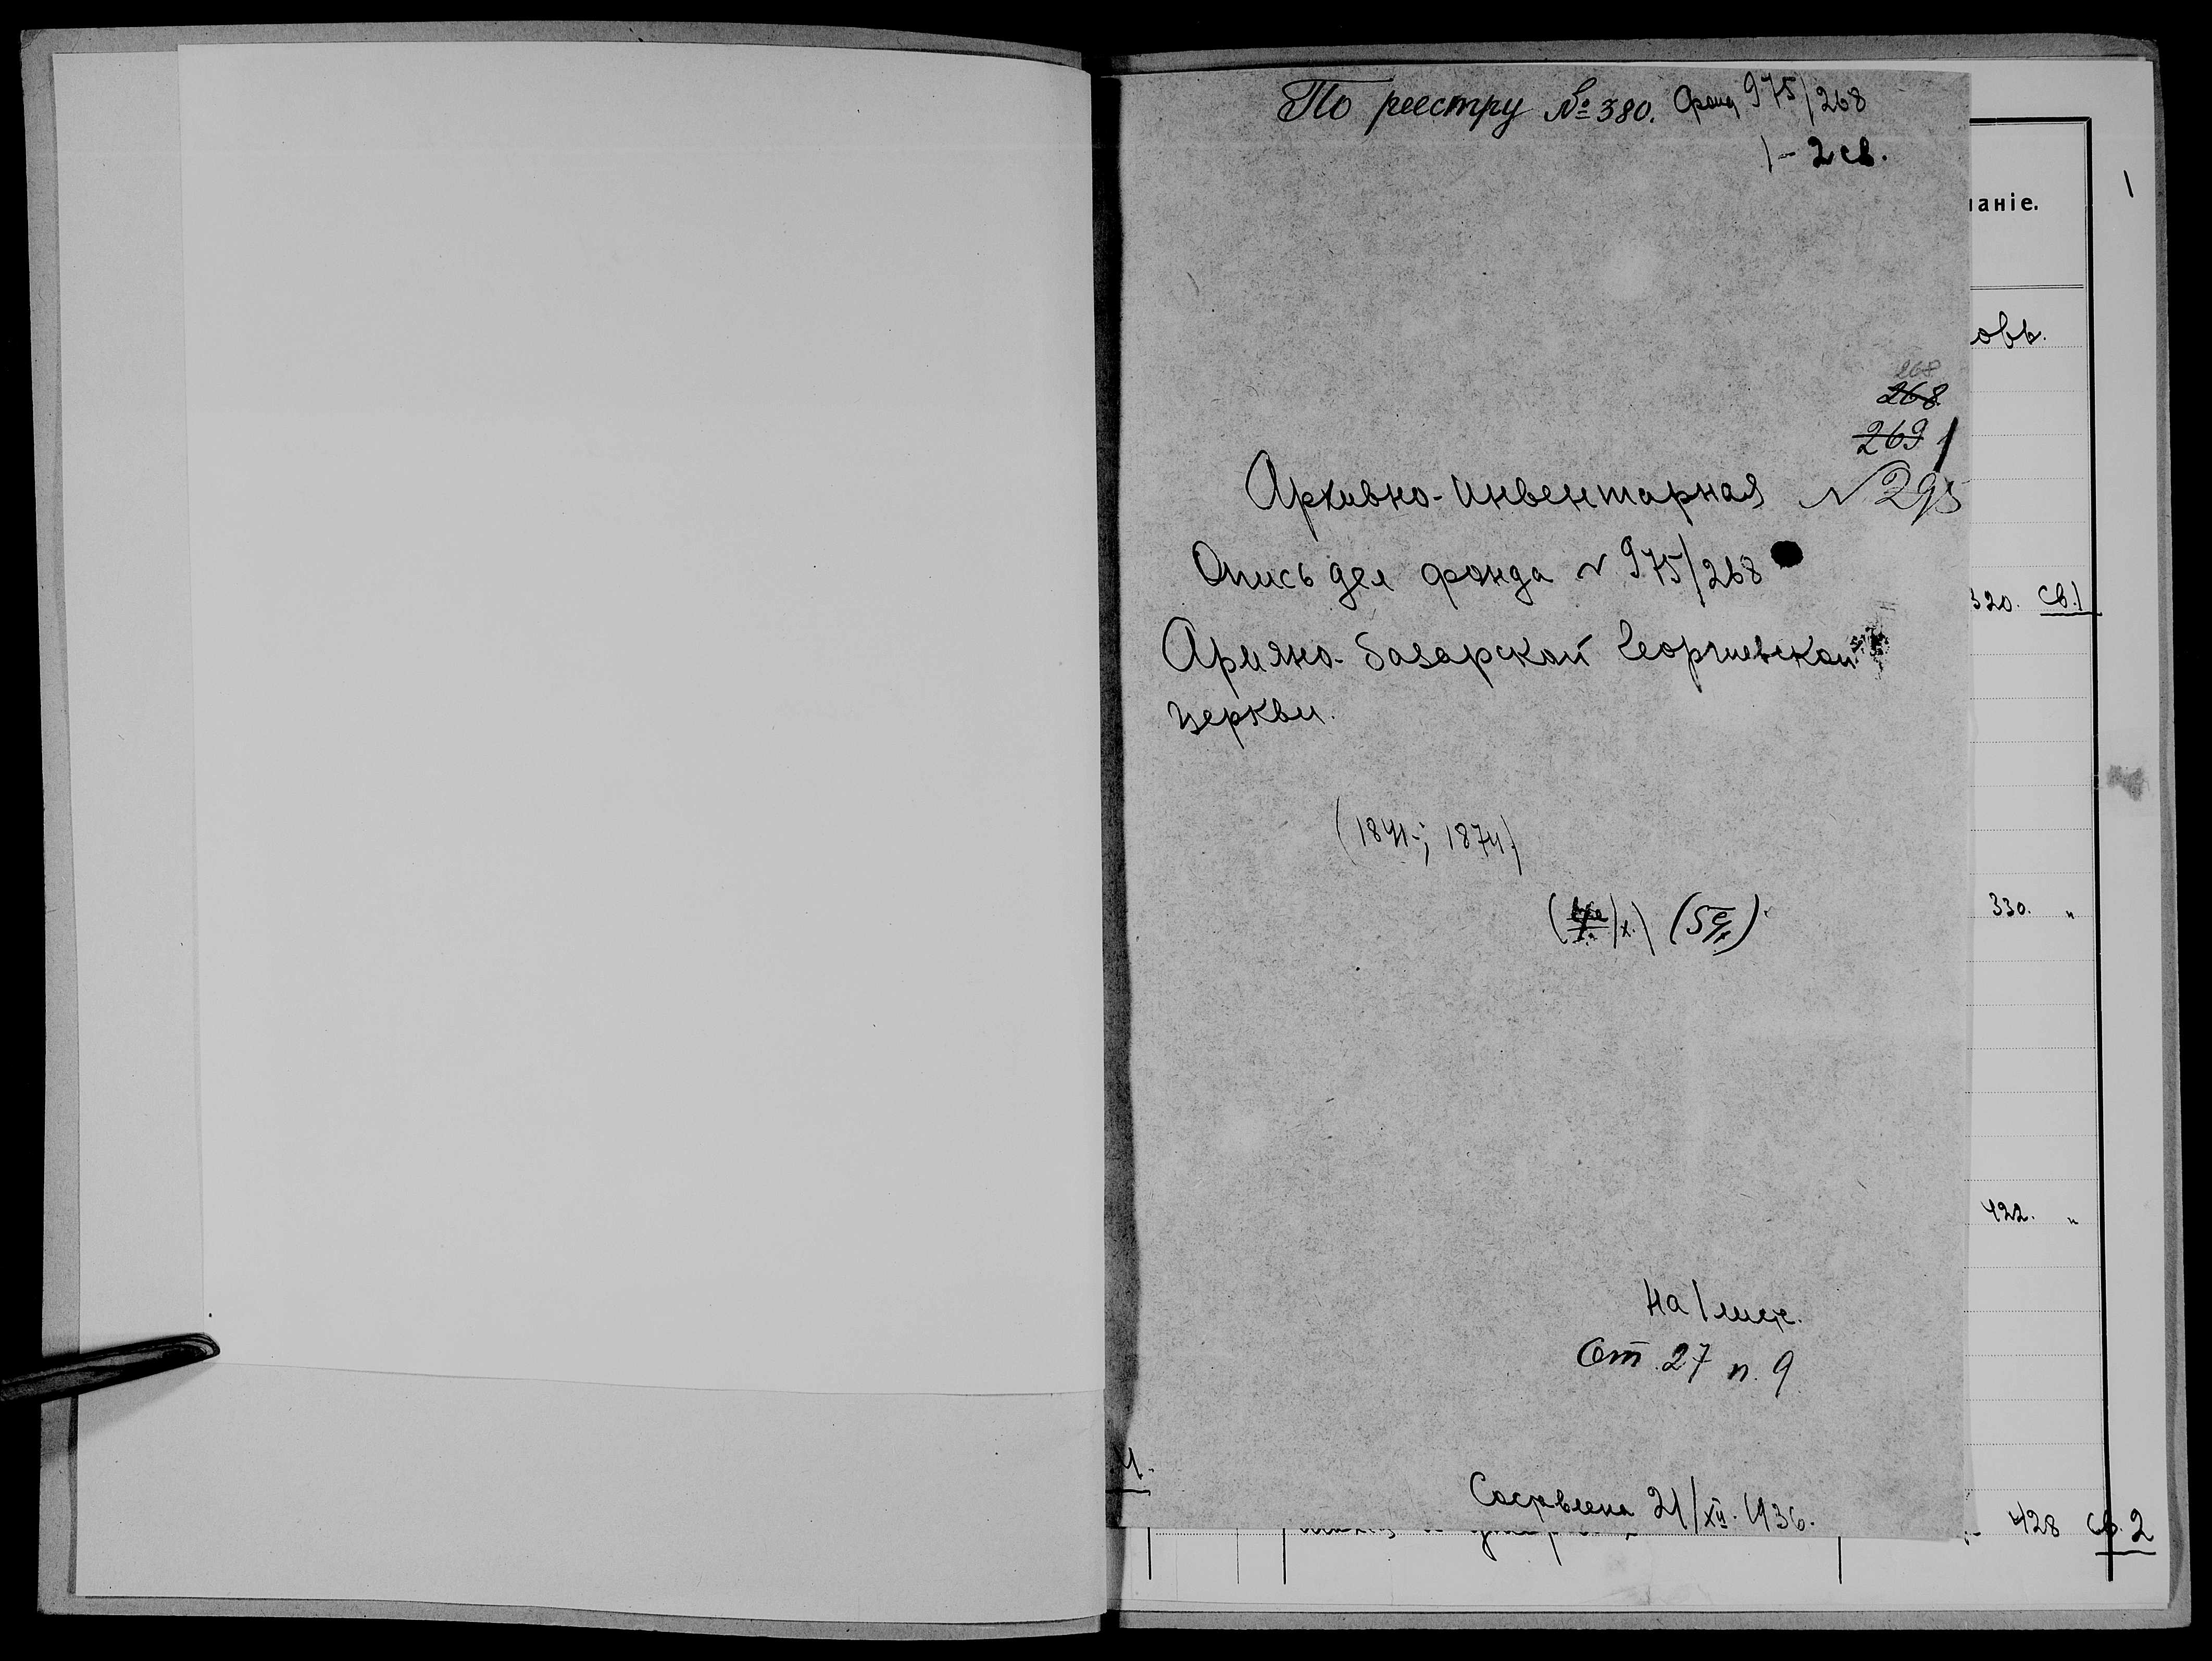 По реестру № 380. Фонд 975/268
1-2 св.
1
аніе.
овъ.
268
268
269 1
Архивно-инвентарная № 295
Опись дел фонда № 975/268
320. св.1
Армяно-базарской Георгиевской
церкви.
(1841-; 1874)
330. "
422. "
На 1 лист.
От. 27 п. 9
4.
Составлена 21/XII. 1936.
428 св. 2